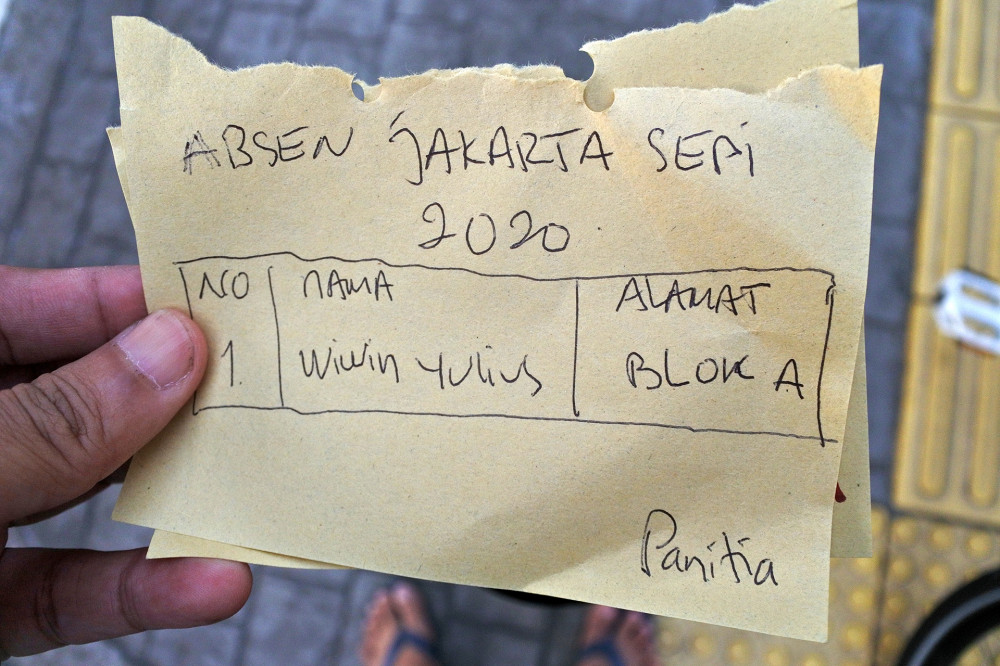 ABSEN JAKARTA SEPI
2020
NO NAMA ALAMAT
1. Wiwin Yulius BLOK A
Panitia